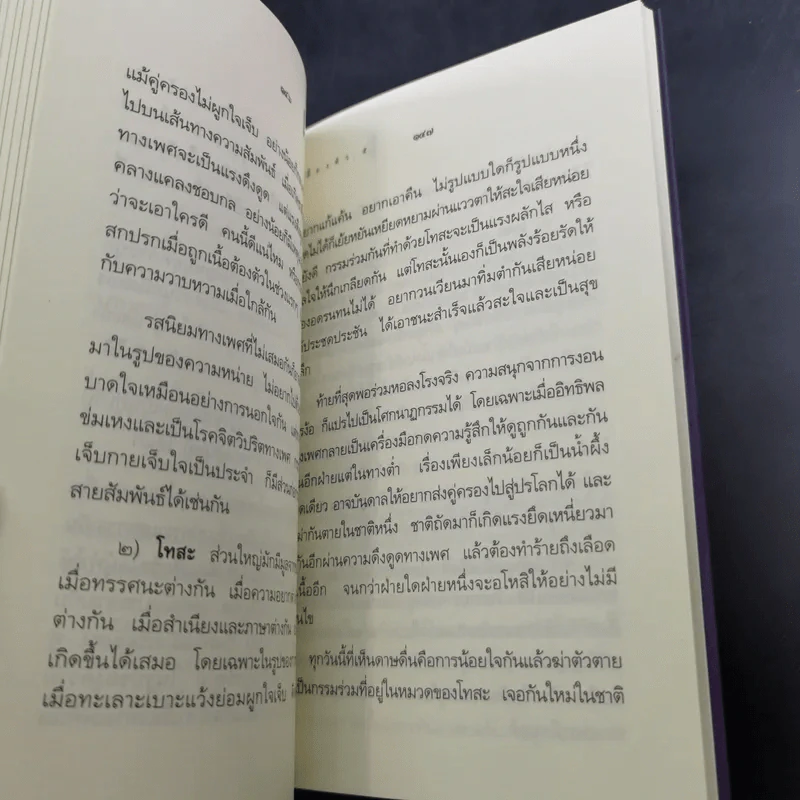 ๑๔๖
แม้คู่ครองไม่ผูกใจเจ็บ อย่างน้อยก็
ไปบนเส้นทางความสัมพันธ์
ทางเพศจะเป็นแรงดึงดูด
คลางแคลงชอบกล อย่างน้อยก็
ว่าจะเอาใครดี คนนี้ดีแน่ไหม
สกปรกเมื่อถูกเนื้อต้องตัวในช่วงแรก
กับความวาบหวามเมื่อใกล้กัน
รสนิยมทางเพศที่ไม่เสมอกัน
มาในรูปของความหน่าย ไม่อยาก
บาดใจเหมือนอย่างการนอกใจกัน
ข่มเหงและเป็นโรคจิตวิปริตทางเพศ
เจ็บกายเจ็บใจเป็นประจำ ก็มีส่วน
สายสัมพันธ์ได้เช่นกัน
๒) โทสะ ส่วนใหญ่มักมีมูล
เมื่อทรรศนะต่างกัน เมื่อความอยาก
ต่างกัน เมื่อสำเนียงและภาษาต่างกัน
เกิดขึ้นได้เสมอ โดยเฉพาะในรูปของ
เมื่อทะเลาะเบาะแว้งย่อมผูกใจเจ็บ
๑๔๗
ยากแก้แค้น อยากเอาคืน ไม่รูปแบบใดก็รูปแบบหนึ่ง
ไม่ได้ก็เย้ยหยันเหยียดหยามผ่านแววตาให้สะใจเสียหน่อย
ยังดี กรรมร่วมกันที่ทำด้วยโทสะจะเป็นแรงผลักไส หรือ
ใจให้นึกเกลียดกัน แต่โทสะนั้นเองก็เป็นพลังร้อยรัดให้
องอดรนทนไม่ได้ อยากวนเวียนมาทิ่มตำกันเสียหน่อย
ประชดประชัน ได้เอาชนะสำเร็จแล้วสะใจและเป็นสุข
ลึก
ท้ายที่สุดพอร่วมหอลงโรงจริง ความสนุกจากการงอน
รง้อ ก็แปรไปเป็นโศกนาฏกรรมได้ โดยเฉพาะเมื่ออิทธิพล
งเพศกลายเป็นเครื่องมือกดความรู้สึกให้ดูถูกกันและกัน
นอีกฝ่ายแต่ในทางต่ำ เรื่องเพียงเล็กน้อยก็เป็นน้ำผึ้ง
ดเดียว อาจบันดาลให้อยากส่งคู่ครองไปสู่ปรโลกได้ และ
ฆ่ากันตายในชาติหนึ่ง ชาติถัดมาก็เกิดแรงยึดเหนี่ยวมา
กันอีกผ่านความดึงดูดทางเพศ แล้วต้องทำร้ายถึงเลือด
เนื้ออีก จนกว่าฝ่ายใดฝ่ายหนึ่งจะอโหสิให้อย่างไม่มี
นไข
ทุกวันนี้ที่เห็นดาษดื่นคือการน้อยใจกันแล้วฆ่าตัวตาย
เป็นกรรมร่วมที่อยู่ในหมวดของโทสะ เจอกันใหม่ในชาติ